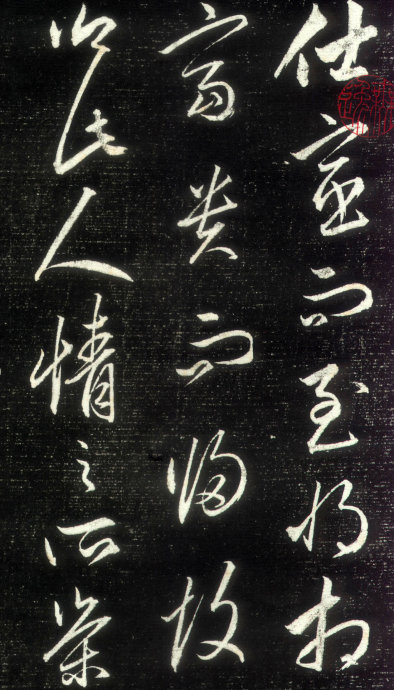 仕宦而至將相
富貴而歸故
鄉此人情之所榮